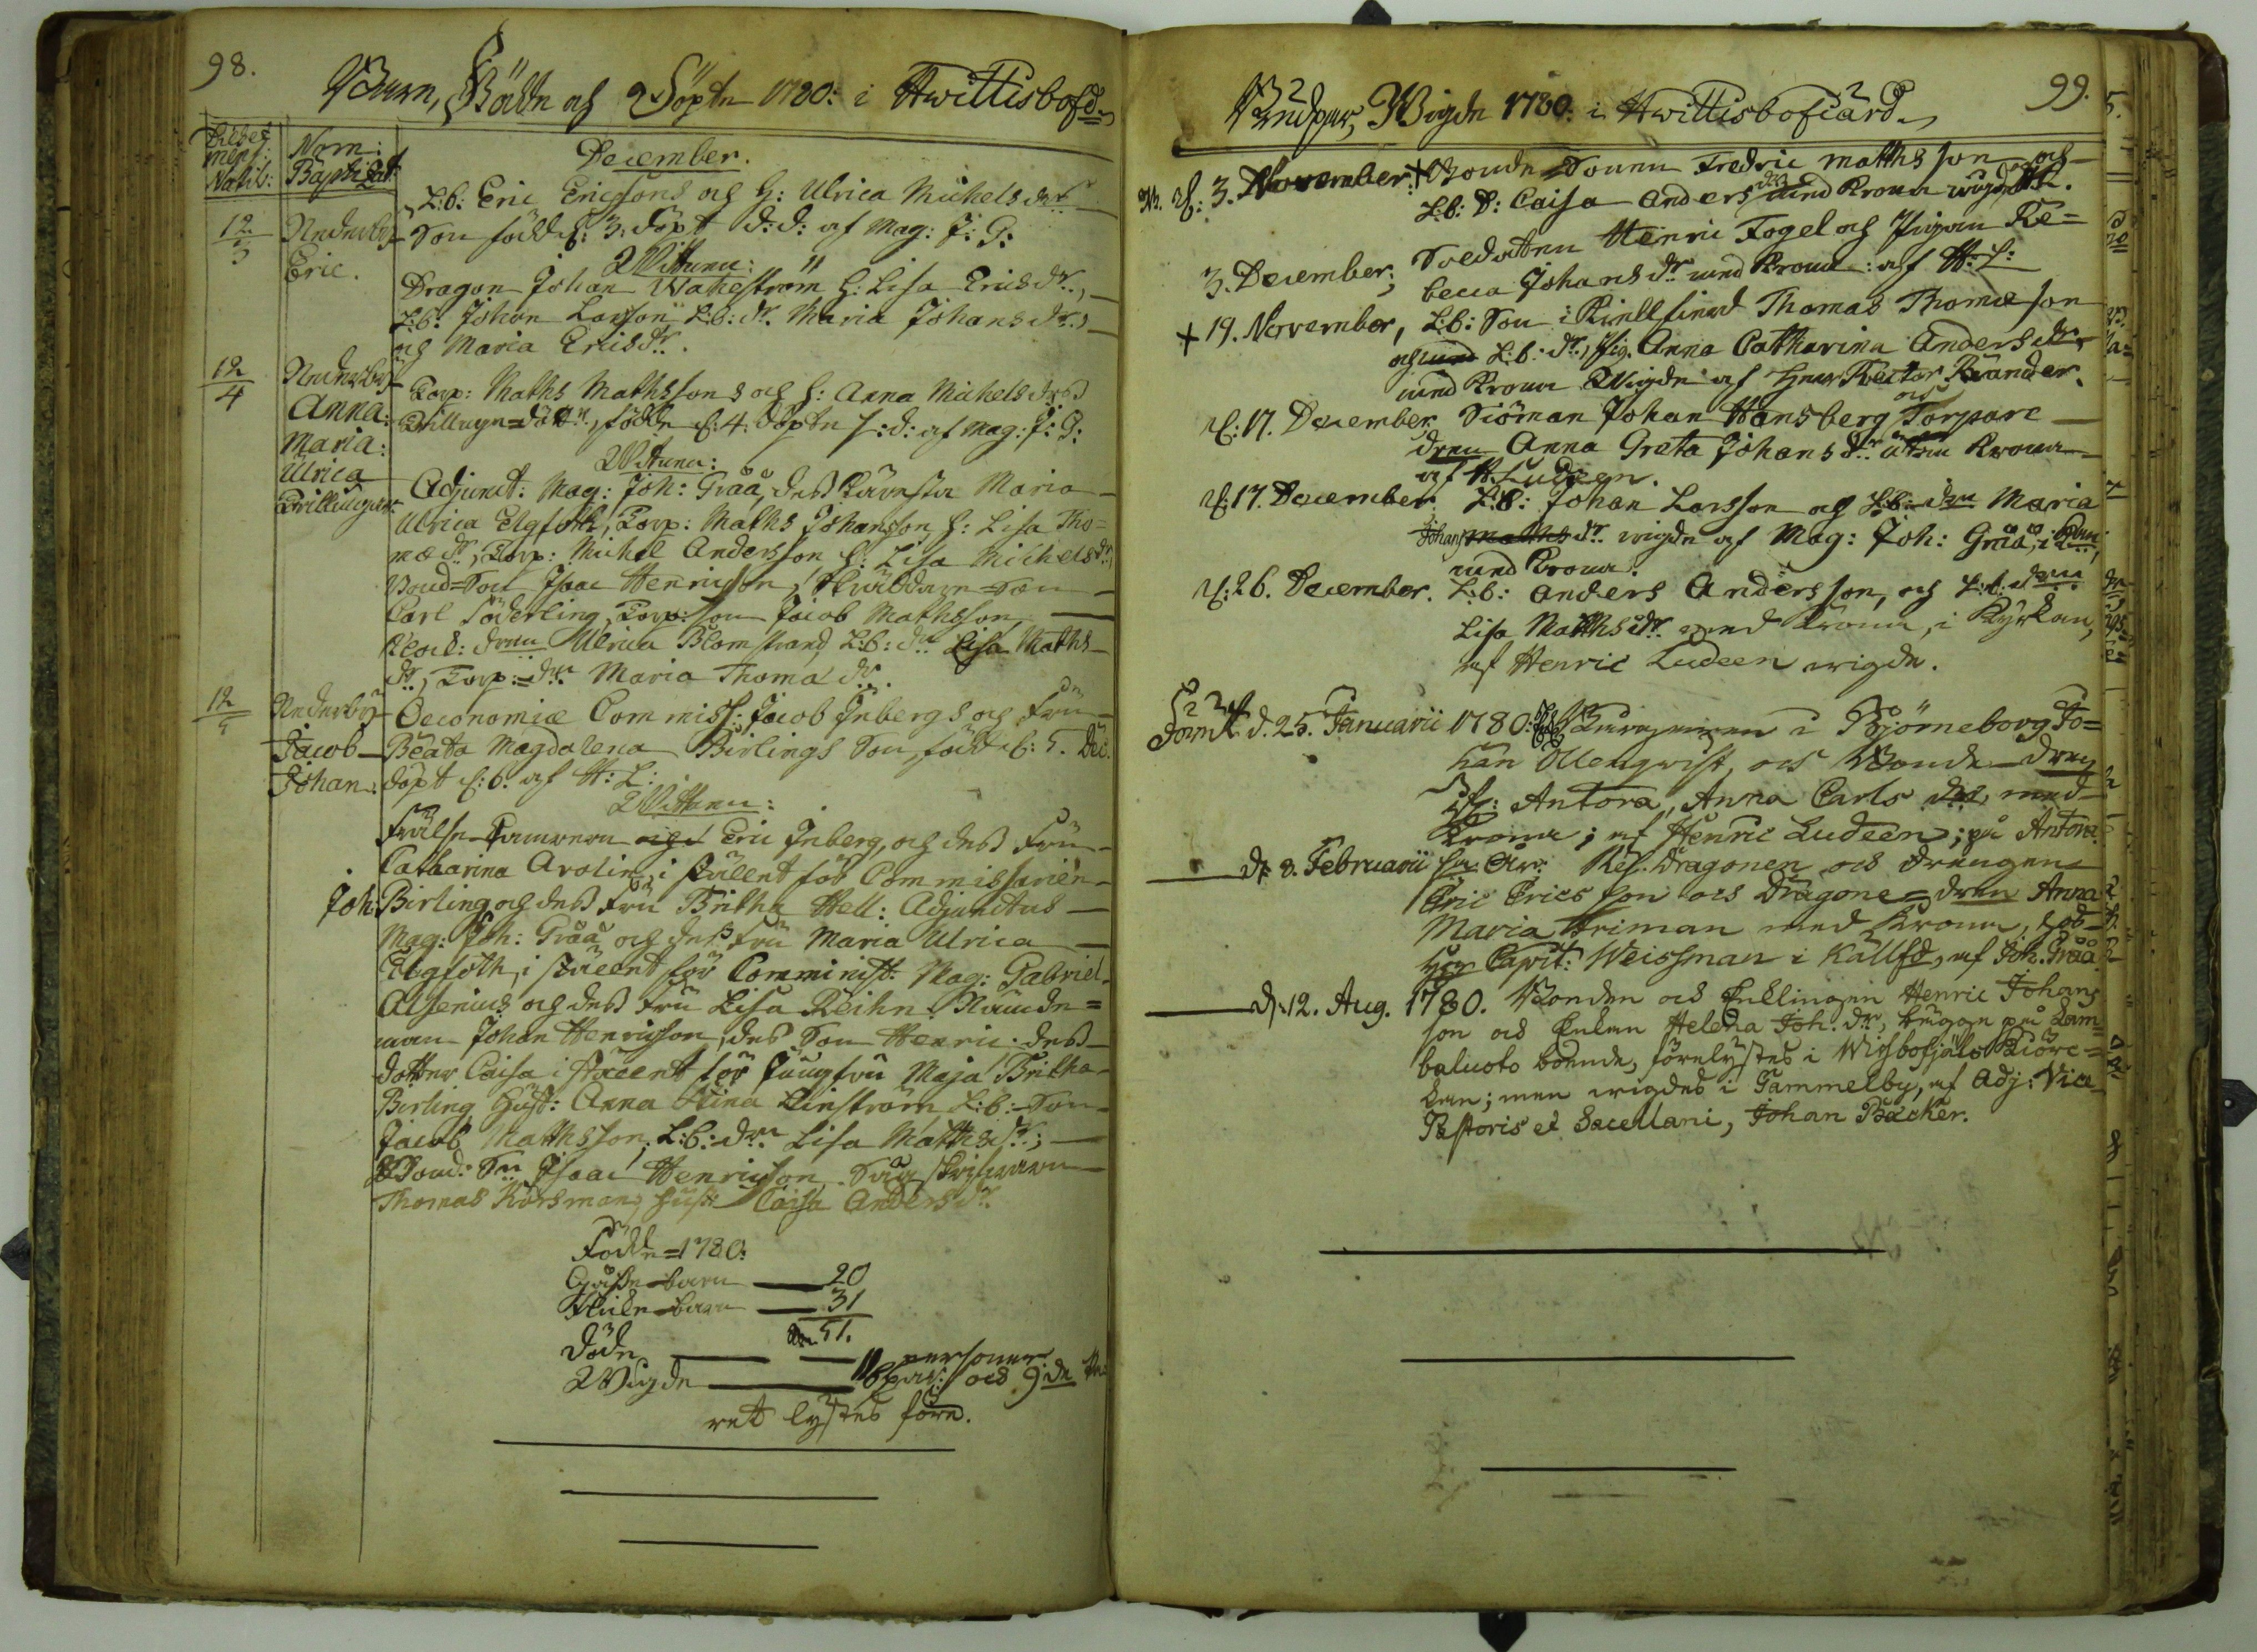 98.
Barn, Födde och Döpte 1780: i Hwittisbofd.
Dies et
mens:
Natil:
Nom:
Baptizat
December.
L:b: Eric Ericssons och H: Ulrica Michelsdrs
12/3 Nederby Son född d: 3: döpt d: d: af Mag: J: G:
Eric.
Wittnen:
Dragon Johan Wahlström H: Lisa Ericsdr.,
L:b: Johan Larsson L:b: dr. Maria Johansdr.,
och Maria Ericsdr.
12/4 Nederby Torp: Maths Mathssons och H: Anna Michelsdrs
Anna: Trillings döttr. födde d: 4. döpte s: d: af Mag: J: G:
Maria:
Ulrica
Trillingar
Wittnen:
Adjunct: Mag: Joh: Gråå, dess Käresta Maria
Ulrica Elgfoth, Torp: Maths Johansson, H: Lisa Tho=
mædr., Torp: Michel Andersson H: Lisa Michelsdr.,
Bond=Son Isaac Henricsson, Skräddare=Son
Carl Söderling, Torp: son Jacob Mathsson,
Klock: dren Ulrica Blomstrand, L:b: dr Lisa Maths
dr, Torp:=dr. Maria Thomædr.
12/5 Nederby Oeconomiæ Commiss: Jacob Inbergs och Fru
Jacob Beata Magdalena Birlings Son, född d: 5. Dec.
Johan: döpt d: 6. af H: L:
Wittnen:
Frälse Camreren Eric Inberg, och dess Fru
Catharina Arolin, i stället för Commissarien
Joh: Birling och dess Fru Britha Hell: Adjunctus
Mag: Joh: Gråå och dess Fru Maria Ulrica
Elgfoth, i stället för Comminist: Mag: Gabriel
Alsenius och dess Fru Lisa Reihn. Nämde=
man Johan Henricsson, dess Son Henric. dess
dotter Caisa i stället för Jungfru Maja Britha
Birling Hust: Anna Stina Linström L:b: Son
Jacob Mathsson, L:b: drn Lisa Mathsdr.;
Bond: Sn Isaac Henricsson,
Thomas Korsman, Hust: Caisa Andersdr.
Födde=1780:
Gosse-barn 20
Flicke-barn 31
51.
Döde personer
Wigde 11 par: och 9:de
ret lystes före.
99.
Brudpar, Wigde 1780: i Hwittisbofiärd.
d: 3. November: + Bonde Sonen Fredric Matthsson och
L:b: D: Caisa Andersdr med Krona wigde
3. December; Soldaten Henric Fogel och Pigan Re=
becca Johansdr. med Krona: af H: L:
+ 19. November, L:b: Son i Kiellfierd Thomas Thomæson
och L:b: dr., Pig. Anna Catharina Andersdr.
med Krona Wigde af Herr Rector Brander.
d: 17. December. Siöman Johan Hansberg och Torpare
dren Anna Greta Johansdr. utan Krona
af H. Ludeen.
d: 17. December. L:b: Johan Larsson och L:b: dren Maria
Johans dr. wigde af Mag: Joh: Gråå,
med Krona.
d: 26. December. L:b: Anders Andersson, och L:b: dren
Lisa Matthsdr. med Krona, i Kyrkan,
af Henric Ludeen wigde.
d. 25. Januarii 1780: Burgeren i Björneborg Jo=
han Ollenqwist, och Bonde dren
Anna Carls dr, med
Krona; af Henric Ludeen; på Antora.
d: 8. Februarii Res. Dragonen och drengen
Eric Ericsson och Dragone=dren Anna
Maria Friman med Krona, hos
Herr Capit: Weissman i Källfd, af Joh. Gråå.
d: 12. Aug. 1780. Bonden och Enklingen Henric Johans
son och Enkan Helena Joh. dr., begge på Lam=
baluoto boende, förelystes i Wissbofjärds Kiörc=
kan; men wigdes i Gammelby, af Adj: Vice
Pastoris et Sacellani, Johan Bäcker.